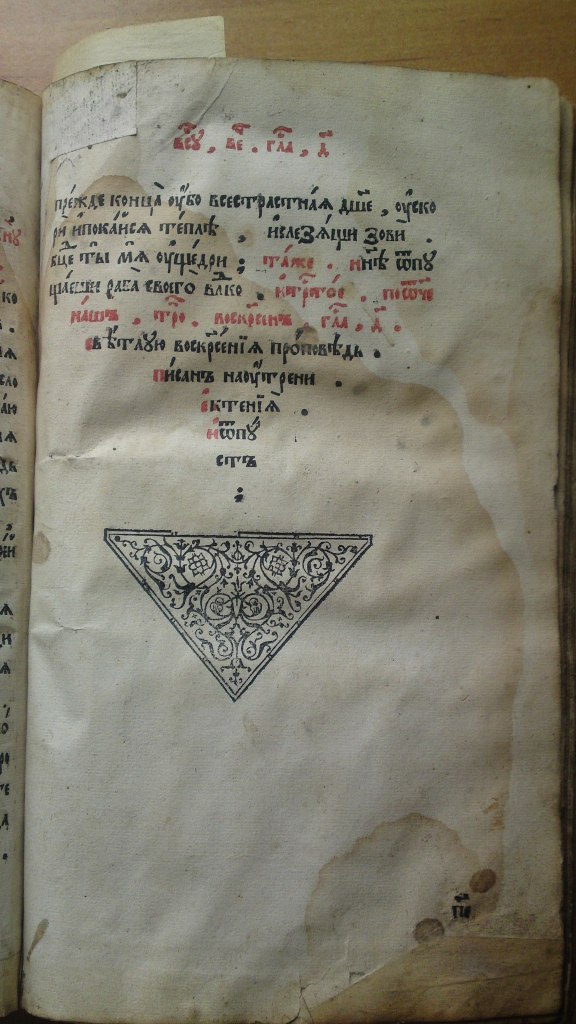 всу҃ , ве҃ . гла҃ , д҃
прежде конца̀ оу҆̀бо всестрастнаѧ дш҃е , оу҆ско
рѝ и҆покайсѧ тепле̑ , исслезѧщи зови .
бц҃е ты̀ мѧ̀ оу҆щедри ; та́же . нн҃ѣ ѿпу
щаеши раба̀ своего̀ влⷣко . и҆трⷭ҇тоѐ . поѿч҃е
нашъ , тро . воскреснъ , гла , д҃ .
свѣтлую воскрⷭ҇енїѧ проповѣдь .
писанъ наоу́трени .
е҆ктенїѧ̀ .
и҆ѿпу́
стъ
: